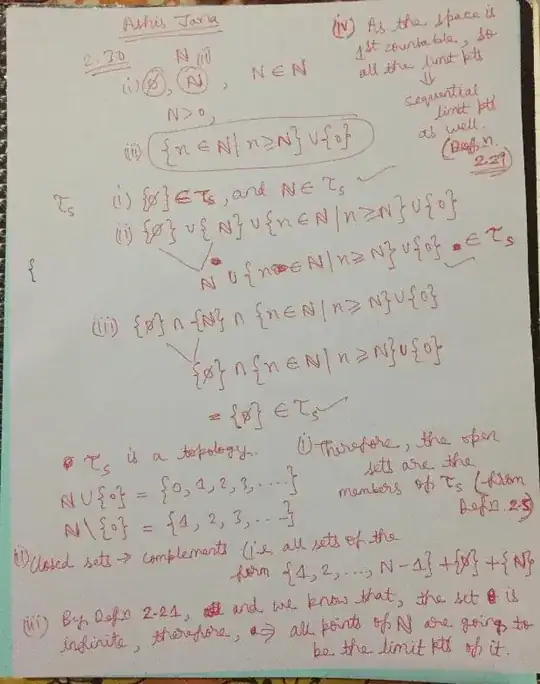 Ashis Jana
2.30
N (ii)
(i) ∅, N, N ∈ ℕ
N>0,
(ii) {n ∈ ℕ | n ≥ N} ∪ {0}
(iv) As the space is
1st countable, so
all the limit pts
⇓
sequential
limit pts
as well.
(Defn.
2.29)
τs (i) {∅} ∈ τs, and ℕ ∈ τs ✓
(ii) {∅} ∪ {ℕ} ∪ {n ∈ ℕ | n ≥ N} ∪ {0}
{
ℕ ∪ {n ∈ ℕ | n ≥ N} ∪ {0} ∈ τs ✓
(iii) {∅} ∩ {ℕ} ∩ {n ∈ ℕ | n ≥ N} ∪ {0}
{∅} ∩ {n ∈ ℕ | n ≥ N} ∪ {0}
= {∅} ∈ τs ✓
τs is a topology.
ℕ ∪ {0} = {0, 1, 2, 3, ....}
ℕ \ {0} = {1, 2, 3, ...}
(i) Therefore, the open
sets are the
members of τs (from
Defn 2.5)
(ii) Closed sets → complements (i.e. all sets of the
form {1, 2, ..., N-1} + {∅} + {ℕ}
(iii) By Defn 2.21, and we know that, the set is
infinite, therefore, ⇒ all points of ℕ are going to
be the limit pts of it.